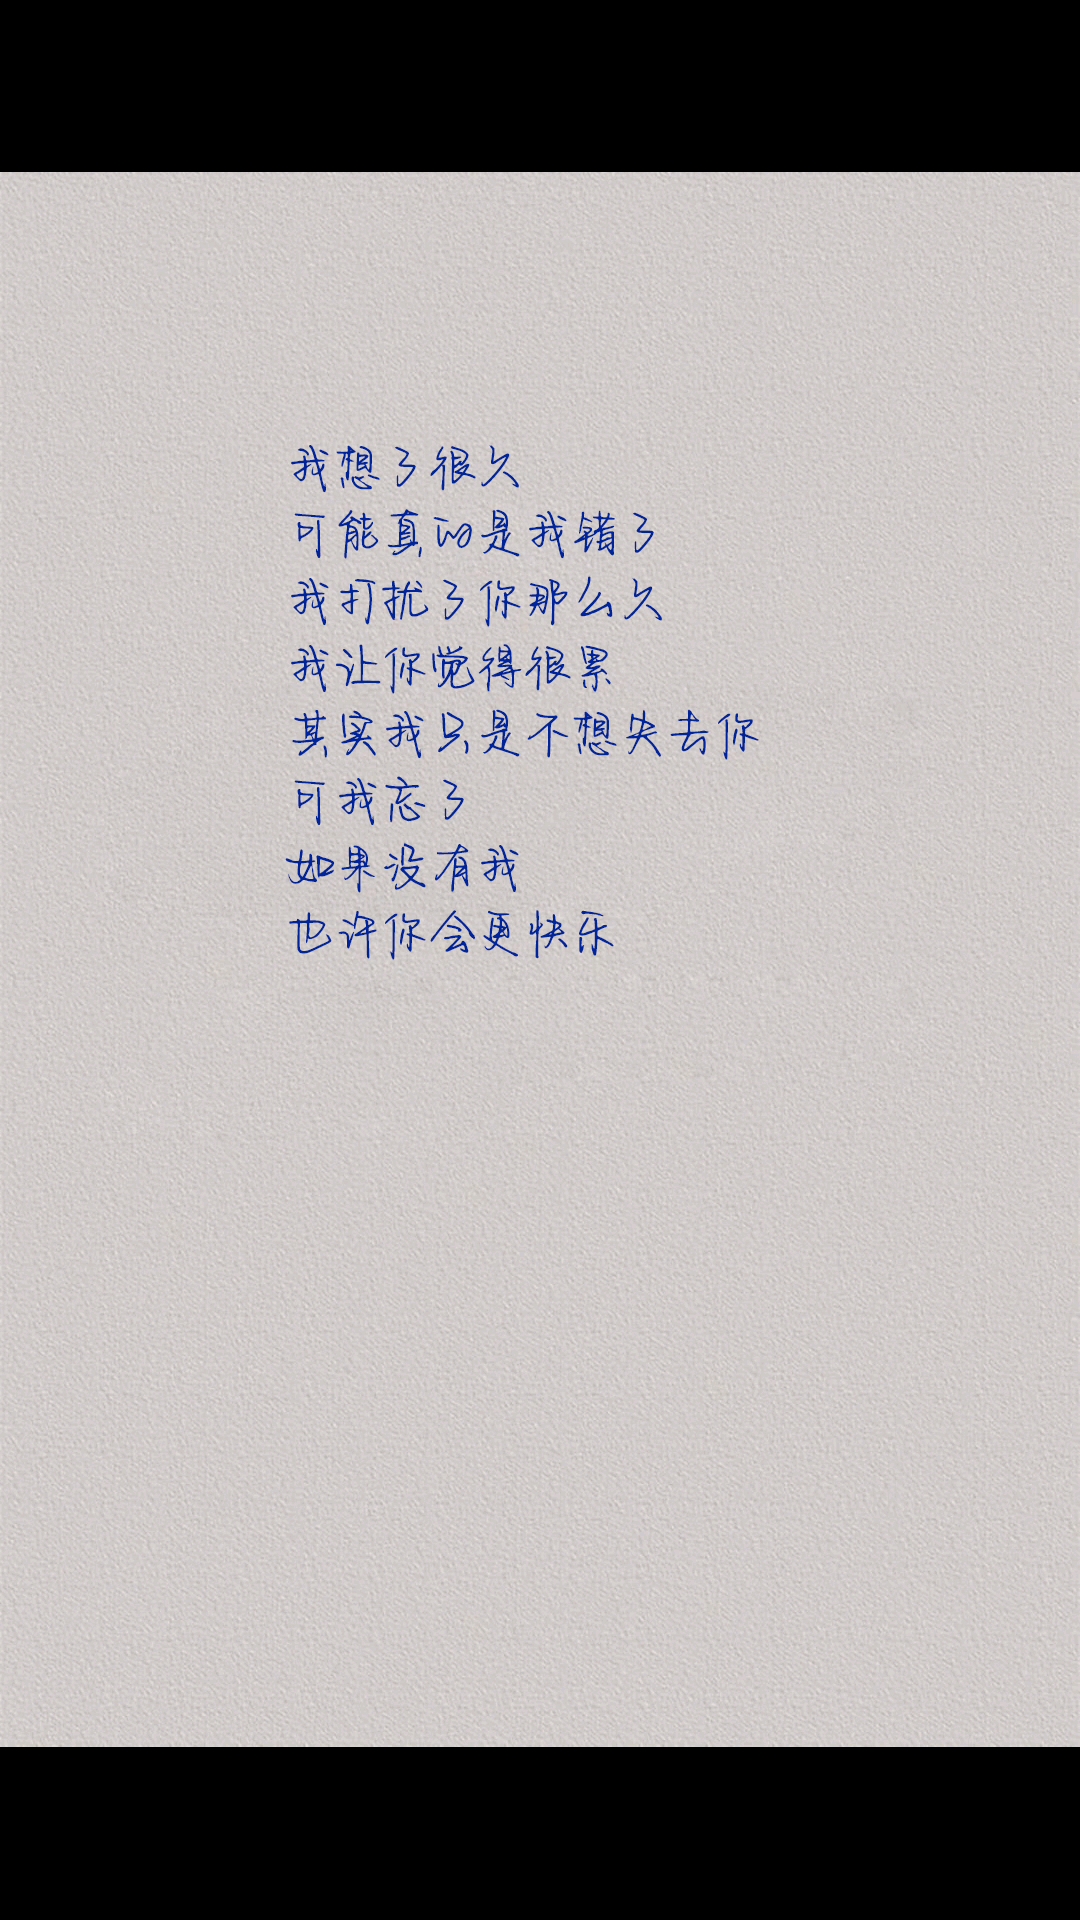 我想了很久
可能真的是我错了
我打扰了你那么久
我让你觉得很累
其实我只是不想失去你
可我忘了
如果没有我
也许你会更快乐